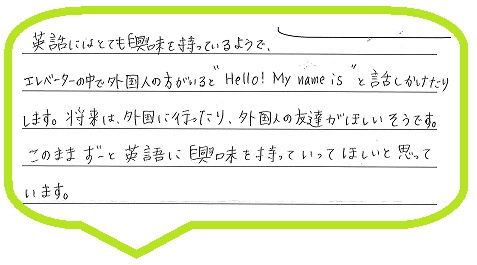 英語にはとても興味を持っているようで、
エレベーターの中で外国人の方がいると"Hello! My name is "と話しかけたり
します。将来は、外国に行ったり、外国人の友達がほしいそうです。
このまま ずーと 英語に 興味を持って いって ほしいと 思って
います。